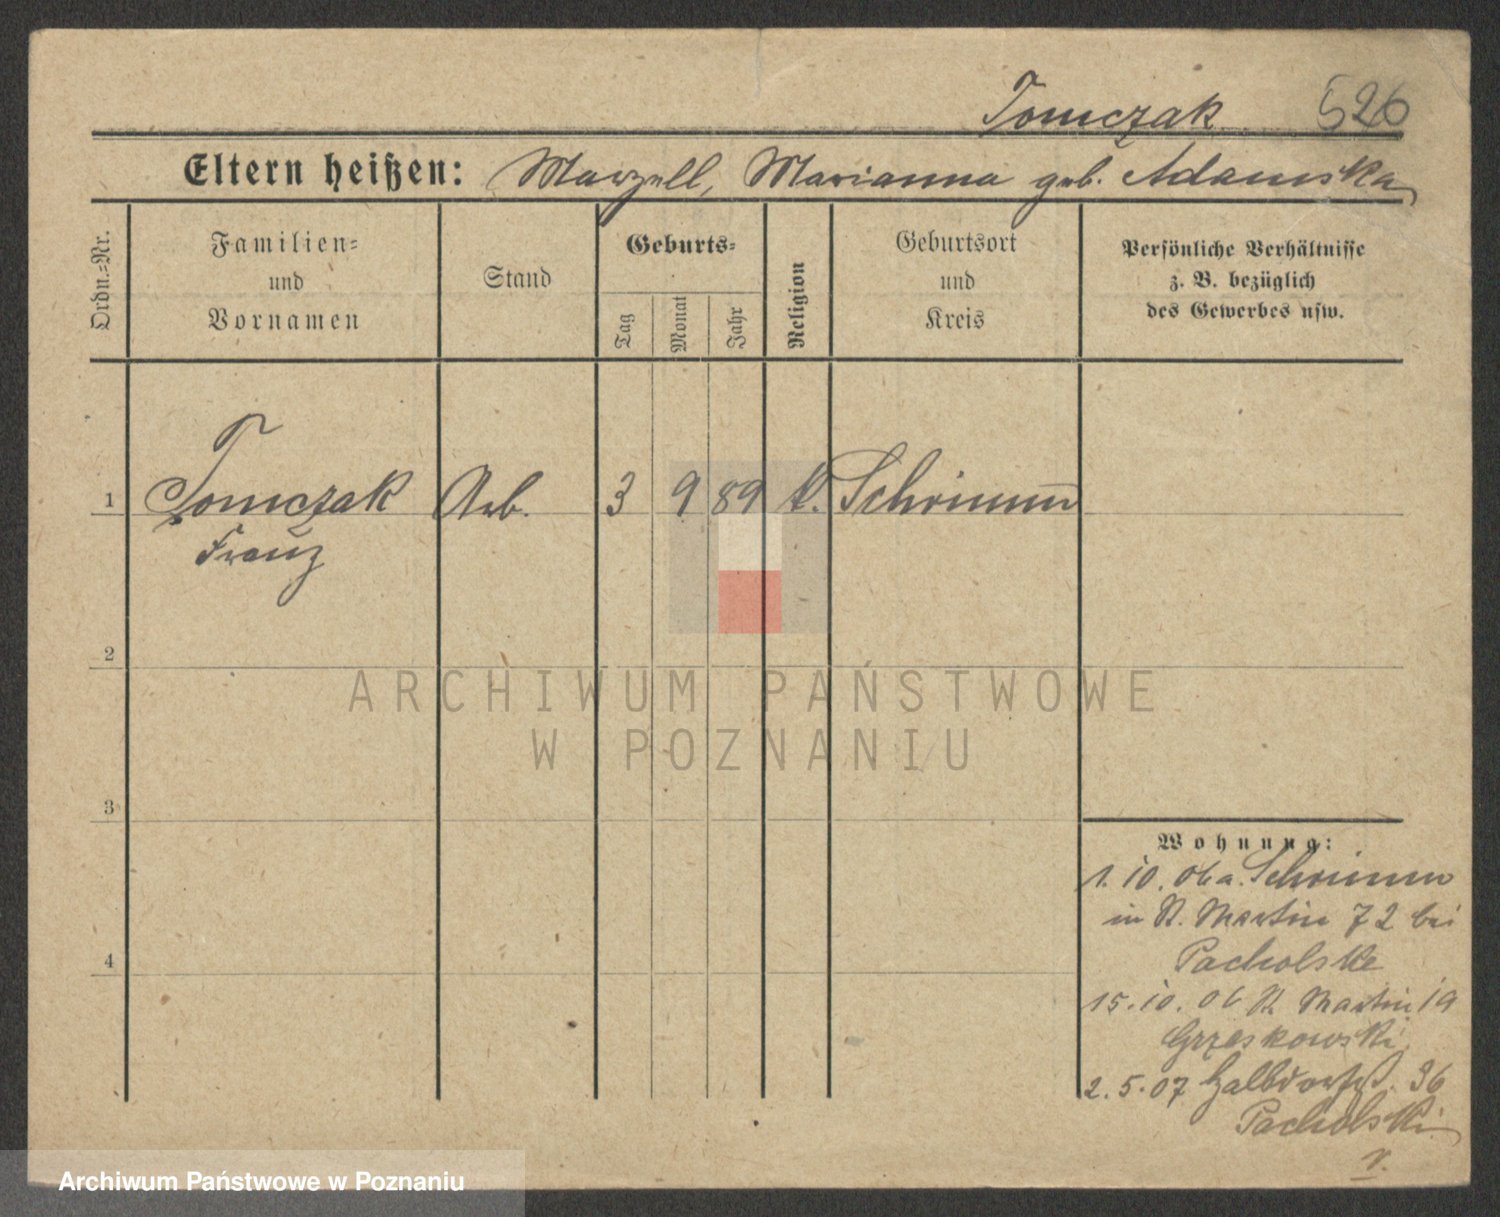 Tomczak 526
Eltern heißen: Marzell, Marianna geb. Adamska
Ordn.-Nr.
Familien-
und
Vornamen
Stand
Geburts-
Tag
Monat
Jahr
Religion
Geburtsort
und
Kreis
Persönliche Verhältnisse
z. B. bezüglich
des Gewerbes usw.
1 Tomczak Arb. 3 9 89 k. Schrimm
Franz
2
ARCHIWUM PAŃSTWOWE
W POZNANIU
3
Wohnung:
1. 10. 06 a. Schrimm
in St. Martin 72 bei
Pacholske
4
15. 10. 06 St. Martin 19
Grzeskowski
2. 5. 07 Halbdorfst. 36
Pacholski
v.
Archiwum Państwowe w Poznaniu